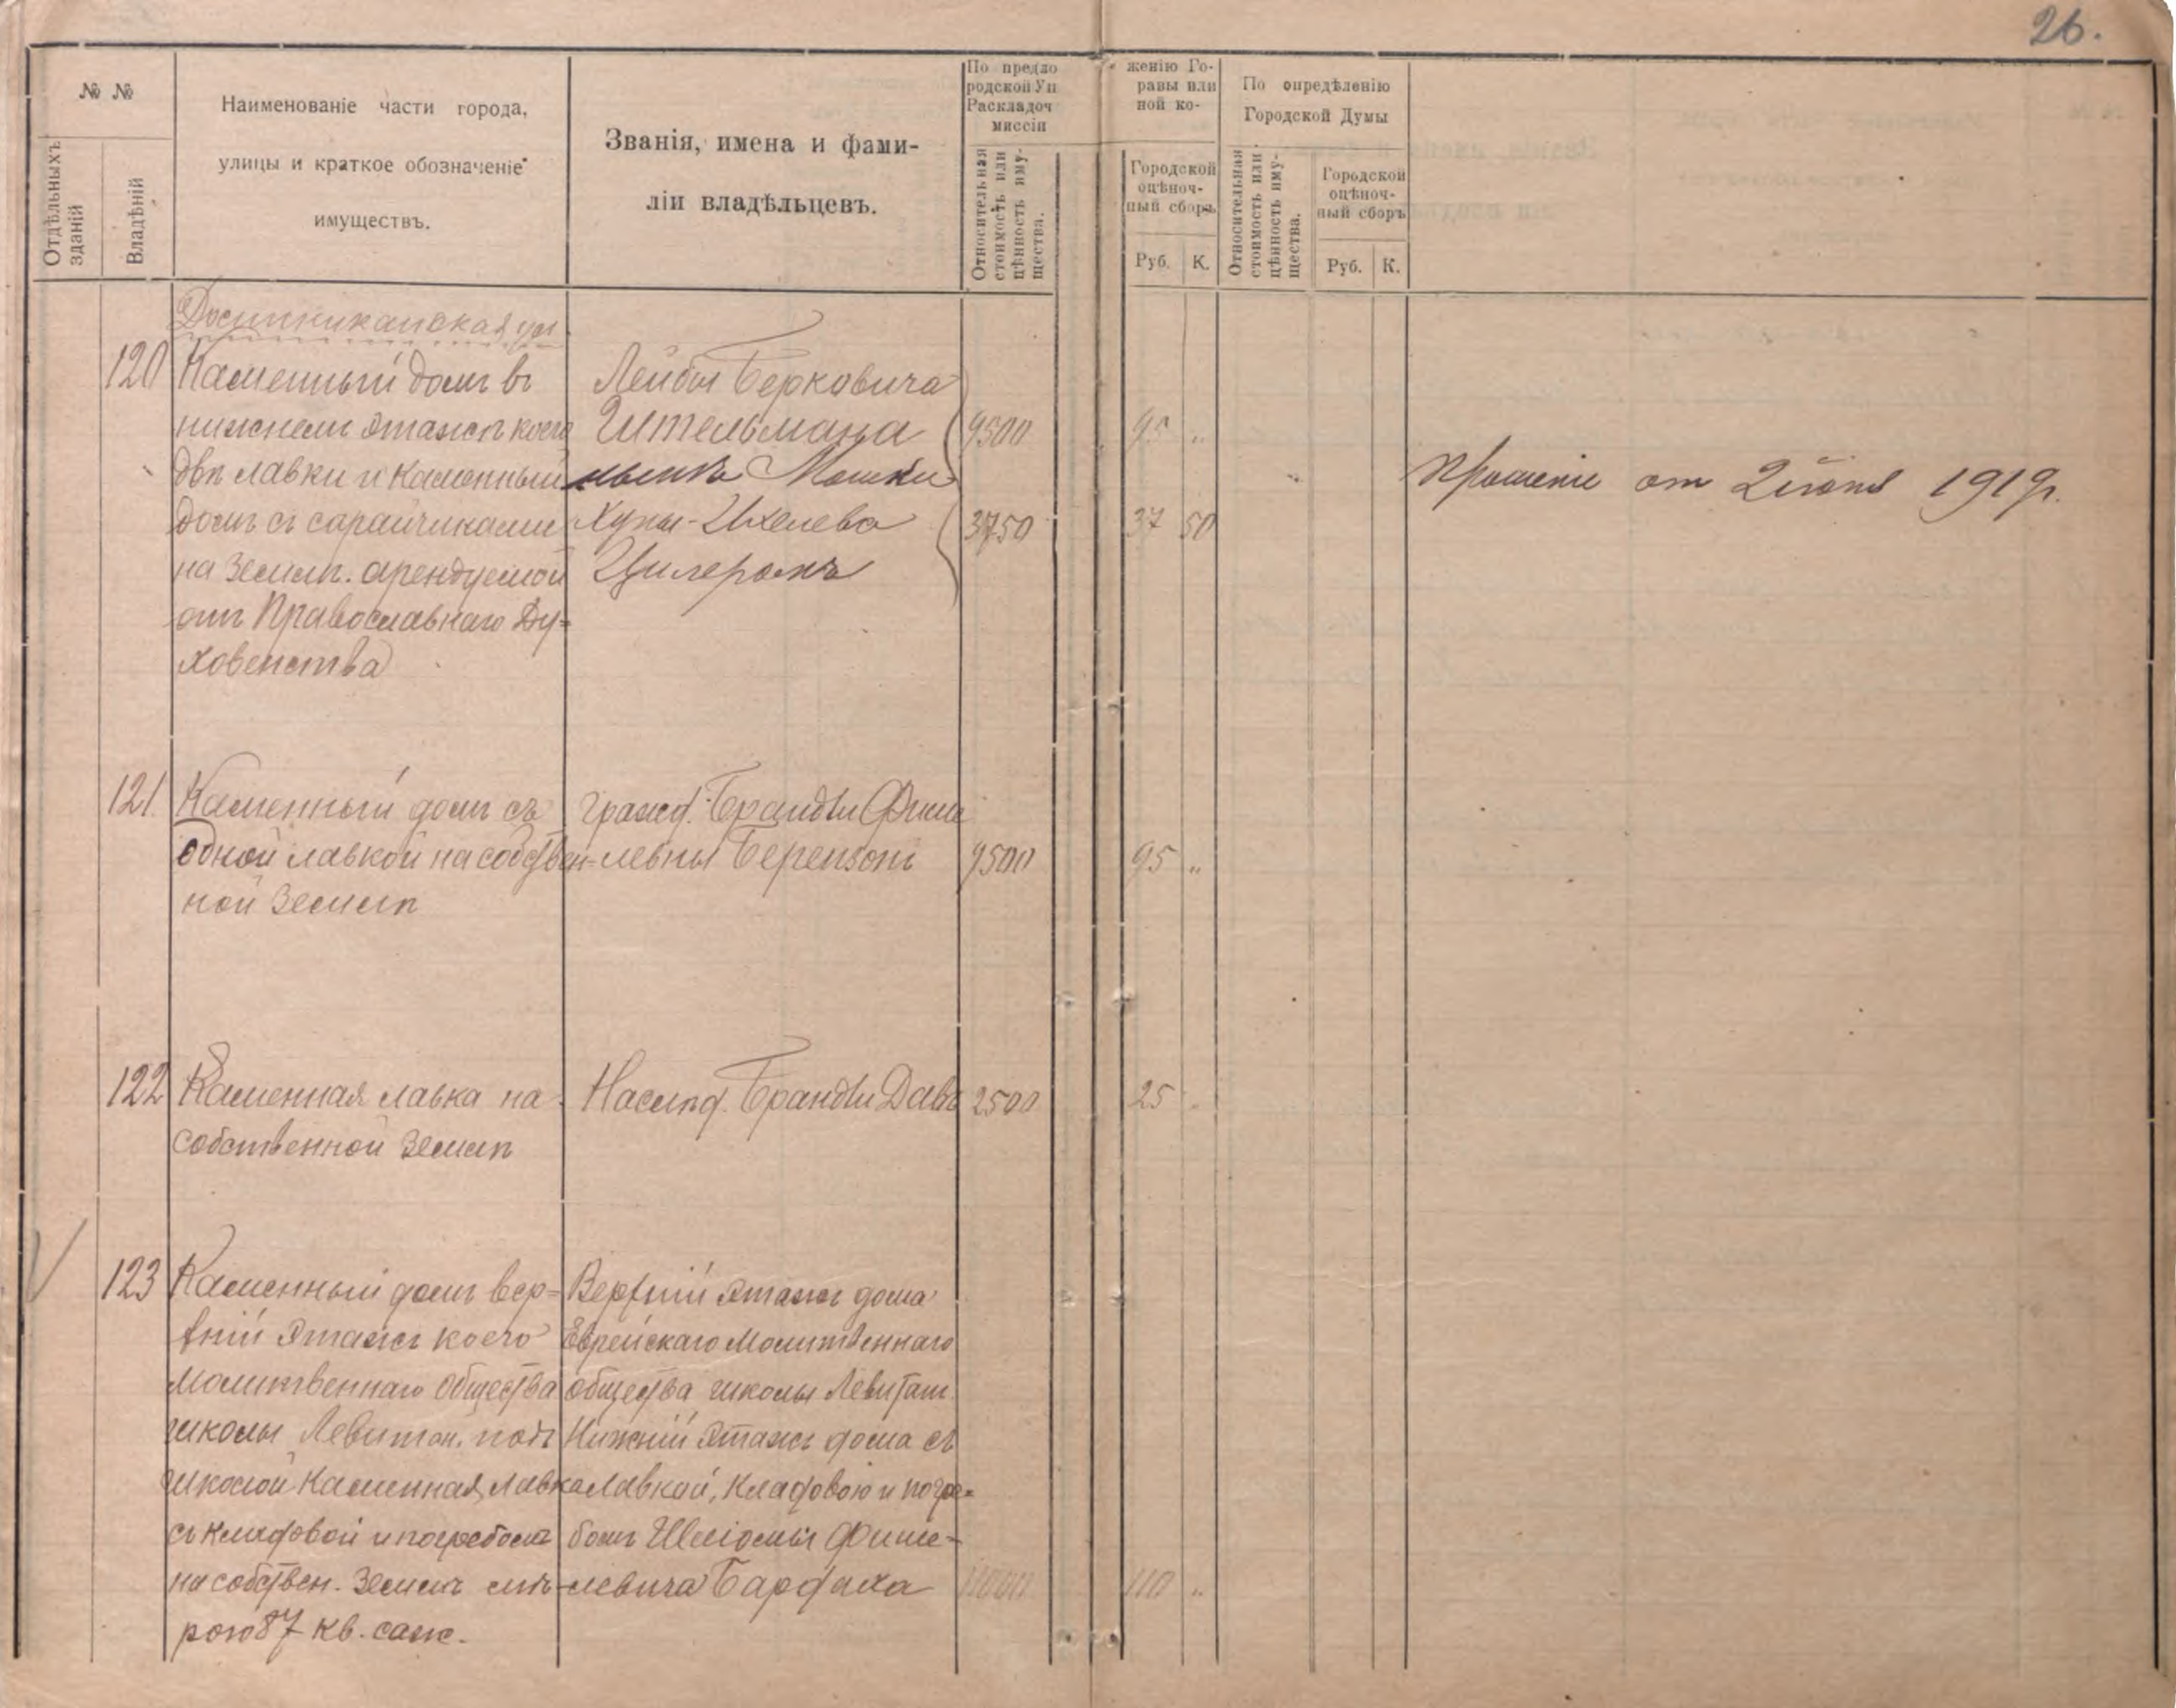 26.
№ №
Отдѣльныхъ зданій
Владѣній
Наименованіе части города,
улицы и краткое обозначеніе
имуществъ.
Званія, имена и фами-
ліи владѣльцевъ.
По предло
родской Уп
Раскладоч
миссіи
женію Го-
равы или
ной ко-
Относительная
стоимость или
цѣнность иму-
щества.
Городской
оцѣноч-
ный сборъ
Руб. К.
По опредѣленію
Городской Думы
Относительная
стоимость или
цѣнность иму-
щества.
Городской
оцѣноч-
ный сборъ
Руб. К.
Доминиканская ул.
120
Каменный домъ въ
нижнемъ этажѣ коего
двѣ лавки и каменный
домъ съ сарайчиками
на землѣ. арендуемой
отъ Православнаго Ду-
ховенства
Лейбы Берковича
Штельмана
Мошки
Хуны-Ихелева
9500
95 "
3750
37 50
Прошеніе от 2 іюня 1919г.
121.
Каменный домъ съ
одной лавкой на собствен-
ной землѣ
Гражд. Брандли Фише
левны Берензонъ
9500
95 "
122
Каменная лавка на
собственной землѣ
Наслѣд. Брандли
2500
25
123
Каменный домъ вер-
хній этажъ коего
Молитвеннаго Общества
школы Левитан. подъ
школой каменная лавка
съ кладовой и погребомъ
на собствен. землѣ мѣ-
рою 87 кв. саж.
Верхній этажъ дома
Еврейскаго Молитвеннаго
общества школы Левитан.
Нижній этажъ дома съ
лавкой, кладовою и погре-
бомъ Шліомы Фише-
левича Бардаха
11000
110 "